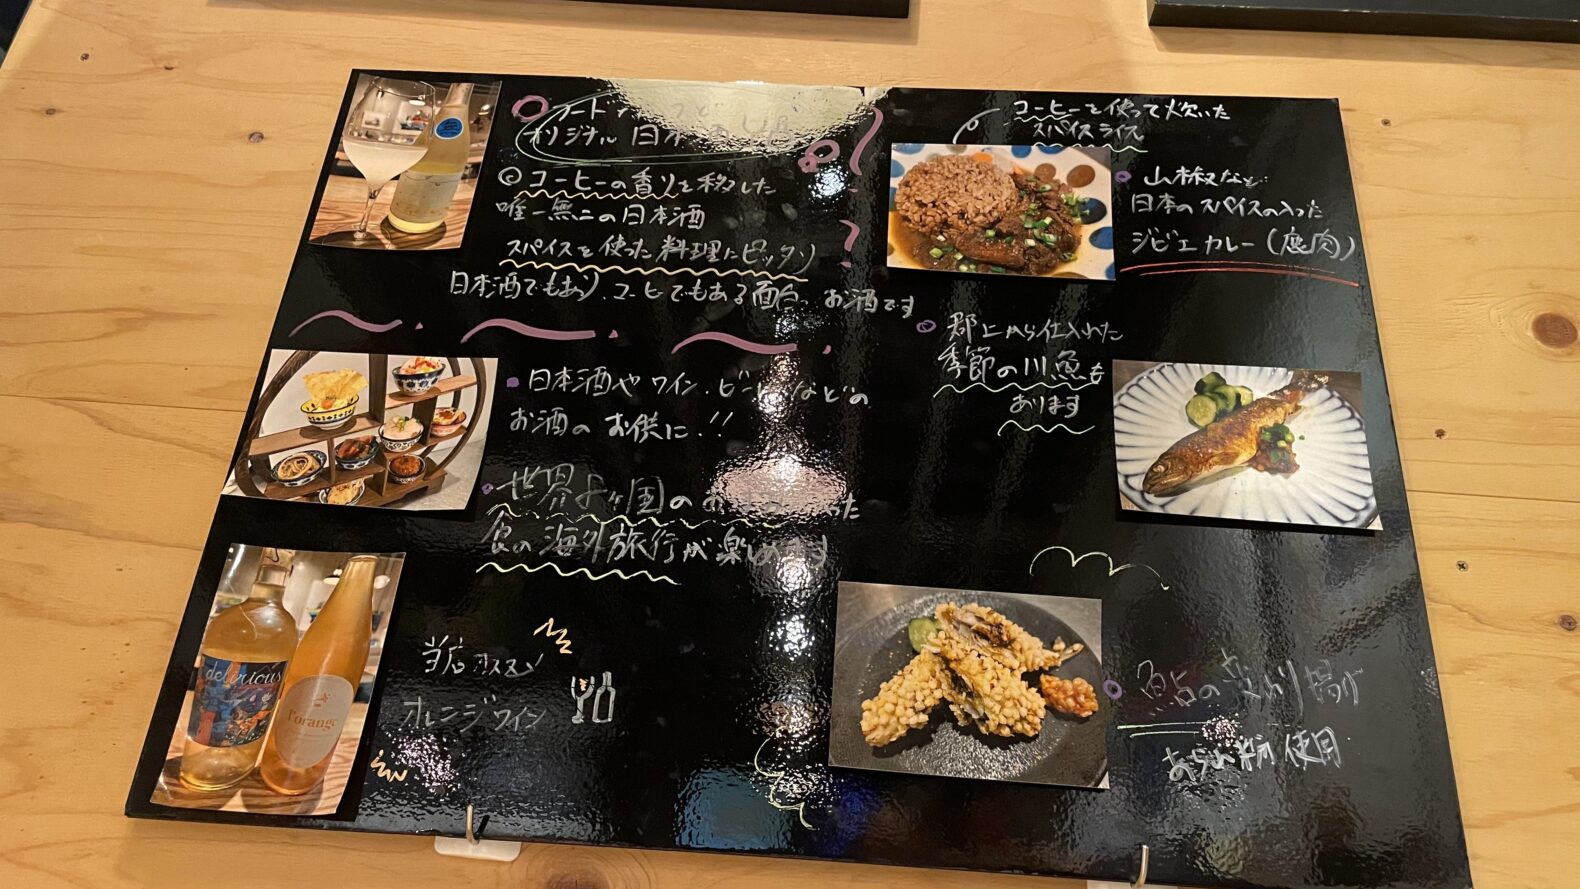 オリジナル 日本
◎ コーヒーの香りを移した
唯一無二の日本酒
スパイスを使った料理にピッタリ
日本酒でもあり、コーヒーでもある面白 お酒です
・日本酒や ワイン、ビールなどの
お酒の お供に!!
・世界 5ヶ国の
食の海外旅行が楽しめます
当店オススメ
オレンジワイン
delirious
l'orange
コーヒーを使って炊いた
スパイスライス
山椒など
日本のスパイスの入った
ジビエカレー(鹿肉)
郡上から仕入れた
季節の川魚も
あります
鮎の ぶり揚げ
あられ粉使用